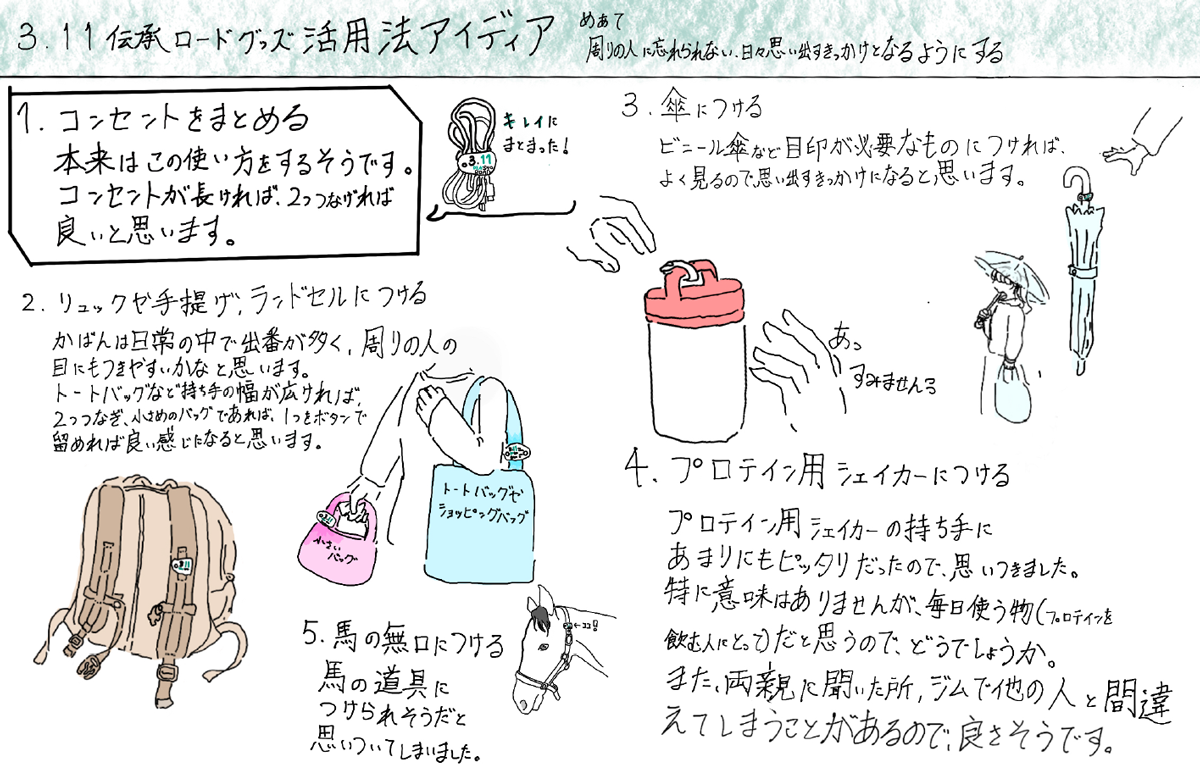 3.11伝承ロードグッズ 活用法アイディア
めあて
周りの人に忘れられない、日々思い出すきっかけとなるようにする
1. コンセントをまとめる
本来はこの使い方をするそうです。
コンセントが長ければ、2つつなげれば
良いと思います。
3.11
キレイに
まとまった!
2. リュックや手提げ,ランドセルにつける
かばんは日常の中で出番が多く、周りの人の
目にもつきやすいかなと思います。
トートバッグなど持ち手の幅が広ければ,
2つつなぎ、小さめのバッグであれば、1つをボタンで
留めれば良い感じになると思います。
3.11
小さい
バッグ
トートバッグや
ショッピングバッグ
3. 傘につける
ビニール傘など目印が必要なものにつければ、
よく見るので、思い出すきっかけになると思います。
あっ
すみません
4. プロテイン用シェイカーにつける
プロテイン用シェイカーの持ち手に
あまりにもピッタリだったので、思いつきました。
特に意味はありませんが、毎日使う物(プロテインを
飲む人にとって)だと思うので、どうでしょうか。
また、両親に聞いた所,ジムで他の人と間違
えてしまうことがあるので、良さそうです。
5. 馬の無口につける
馬の道具に
つけられそうだと
思いついてしまいました。
←ココ!!